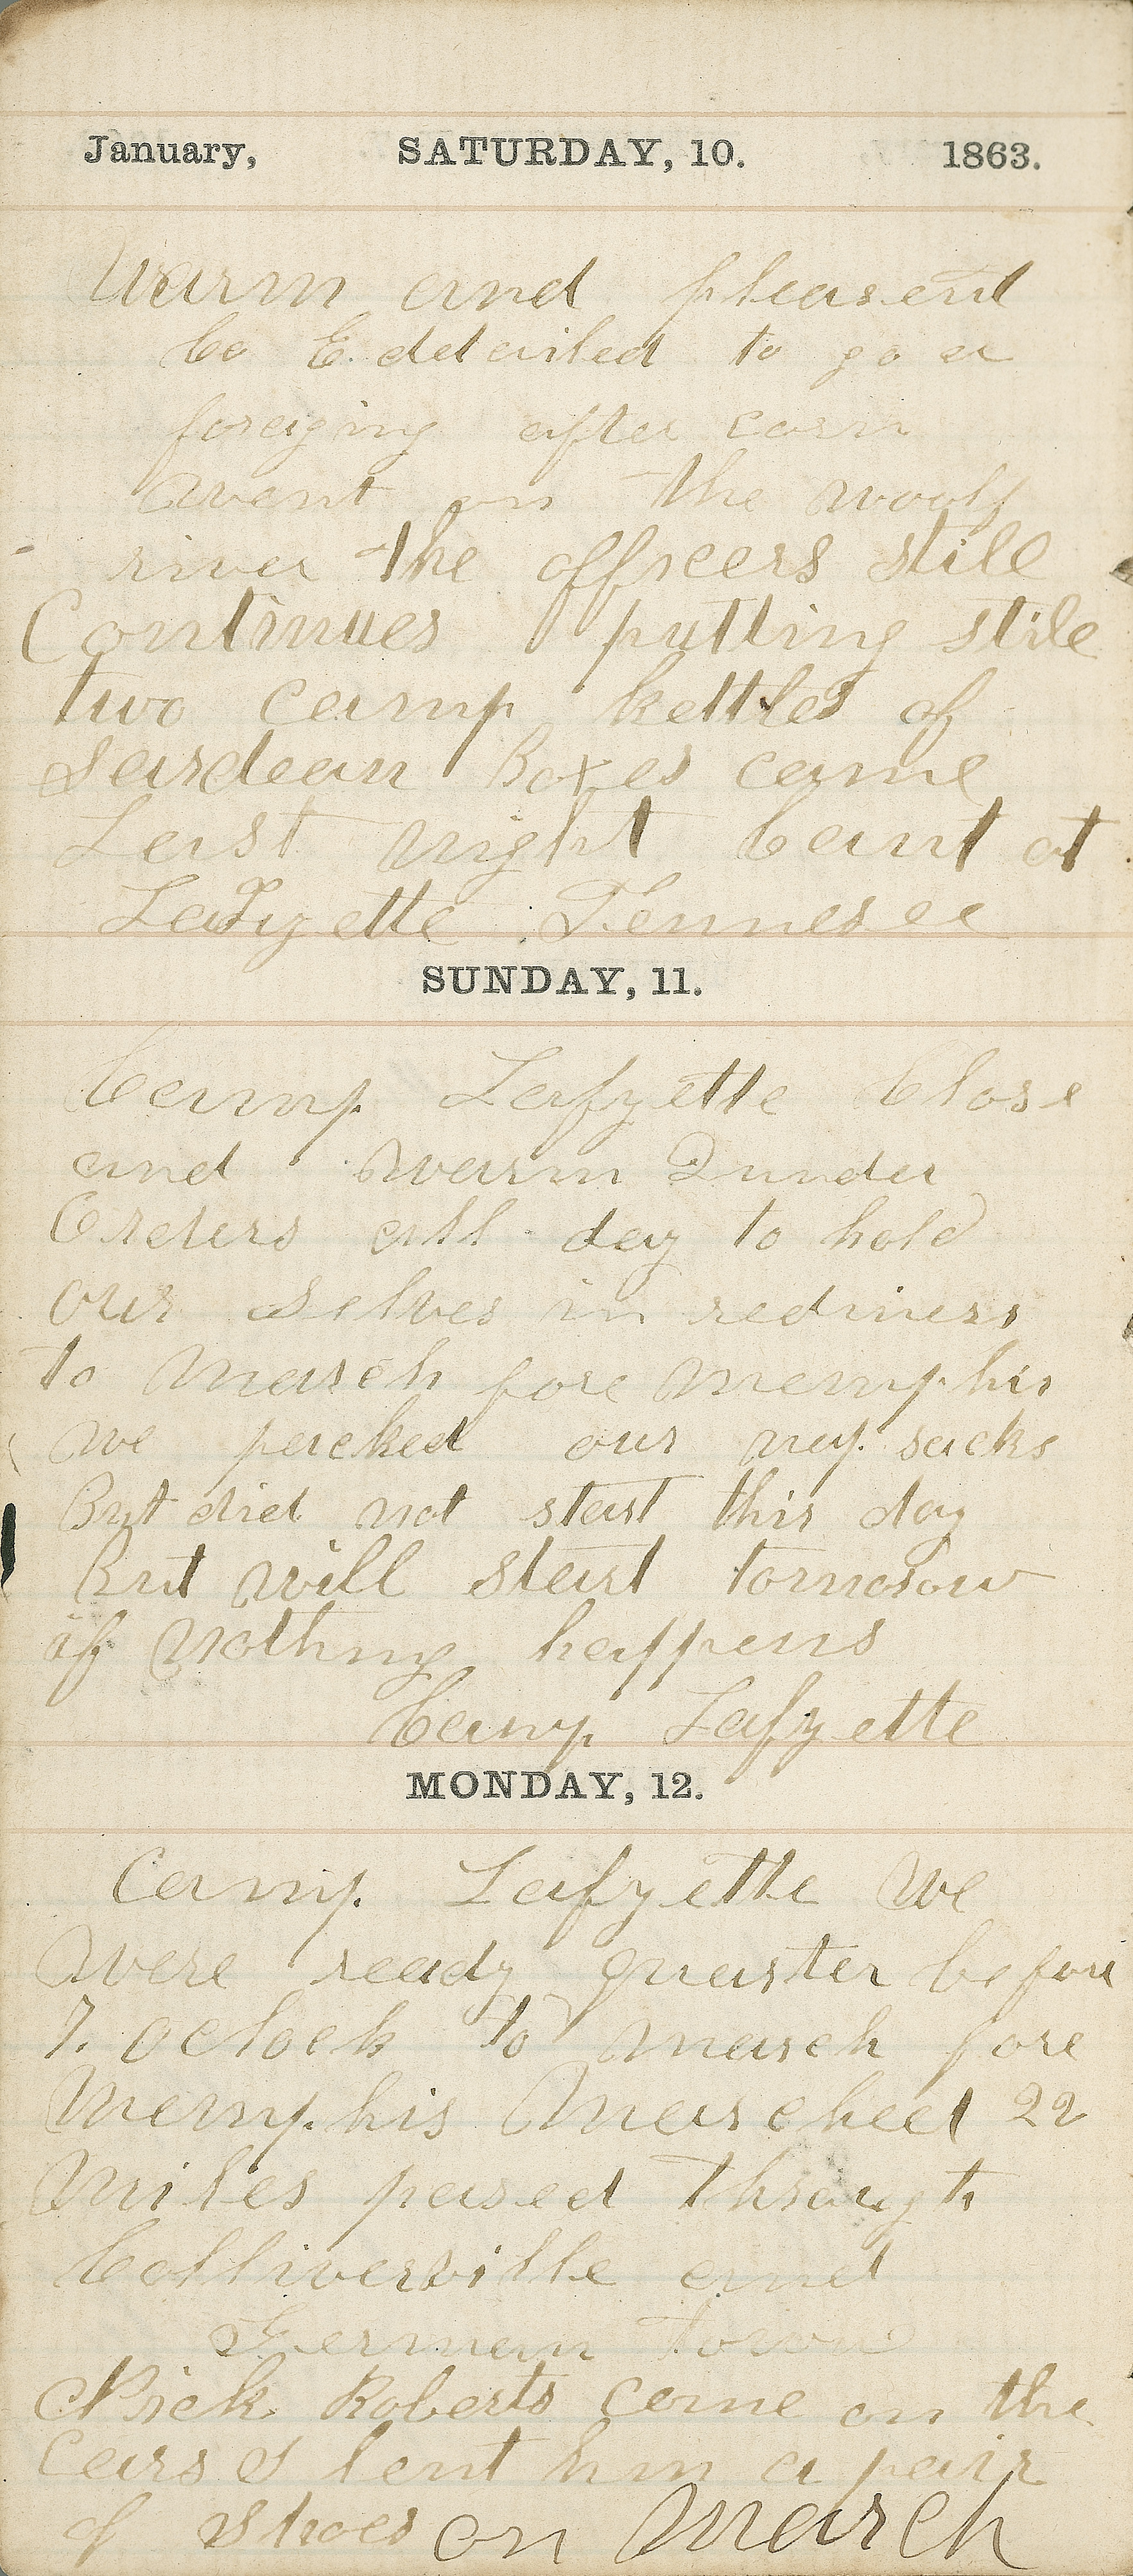 January, SATURDAY, 10. 1863.
Warm and pleasent
Co E. detailed to go a
foreging after corn
Went on the woolf
river the offiscers stile
Continues putting stile
two camp kettles of
Sardean Boxes came
Last night Camt at
Lafayette Tennesee
SUNDAY, 11.
Camp Lafyette Close
and warm under
Orders all day to hold
our selves in rediness
to March fore Memphis
we packed our nap sacks
But did not start this day
But will start tomorow
if Nothing happens
Camp Lafyette
MONDAY, 12.
Camp Lafyette We
Were ready quarter before
7. oclock to march fore
Memphis Marscheed 22
Miles pased through
Colliversville and
German town
Nick Roberts came on the
Cars I lent him a pair
of Shoes on March